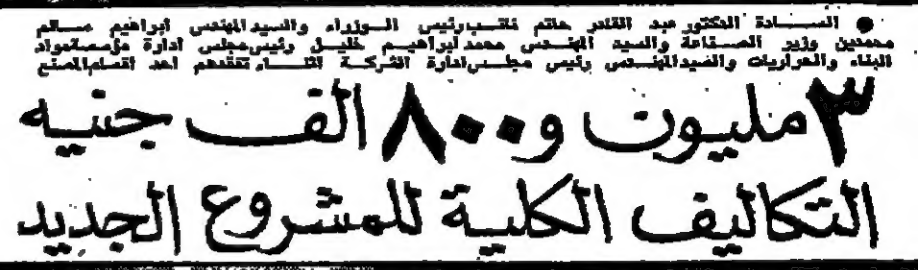 ● السادة الدكتور عبد القادر حاتم نائب رئيس الوزراء والسيد المهندس ابراهيم سالم
محمدين وزير الصناعة والسيد المهندس محمد ابراهيم خليل رئيس مجلس ادارة مؤسسة مواد
البناء والحراريات والسيد المهندس رئيس مجلس ادارة الشركة اثناء تفقدهم احد اقسام المصنع
٣ مليون و ٨٠٠ الف جنيه
التكاليف الكلية للمشروع الجديد